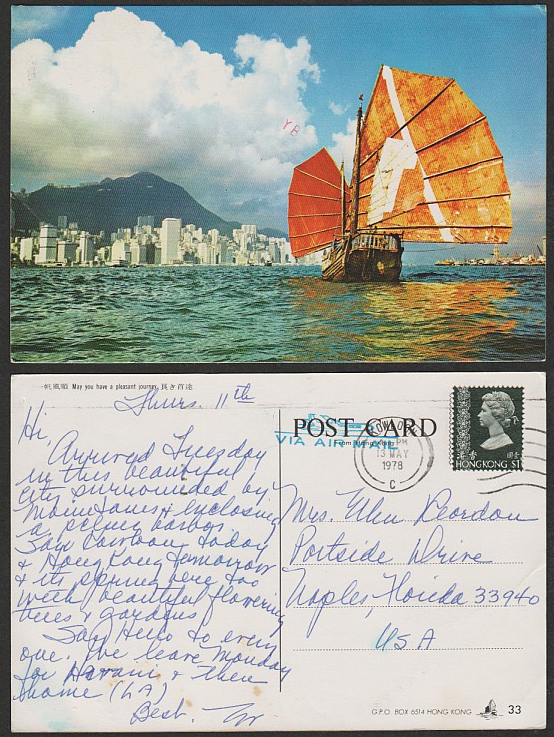 YB
一帆風順 May you have a pleasant journey.
Thurs. 11th
Hi,
Arrived Tuesday
in this beautiful
city surrounded by
Mountains & enclosing
a harbor.
Saw today
& Hong Kong tomorrow
& its spring here too
with beautiful flowering
trees & gardens
Say Hello to every
one. We leave Monday
for & then
home (LA)
Best.
POST CARD
from Hong Kong
VIA AIR MAIL
KOWLOON
PM
13 MAY
1978
C
香港
壹圓
HONG KONG $1
Mrs. Reardon
Portside Drive
Naples, Florida 33940
USA
G.P.O. BOX 6514 HONG KONG
33